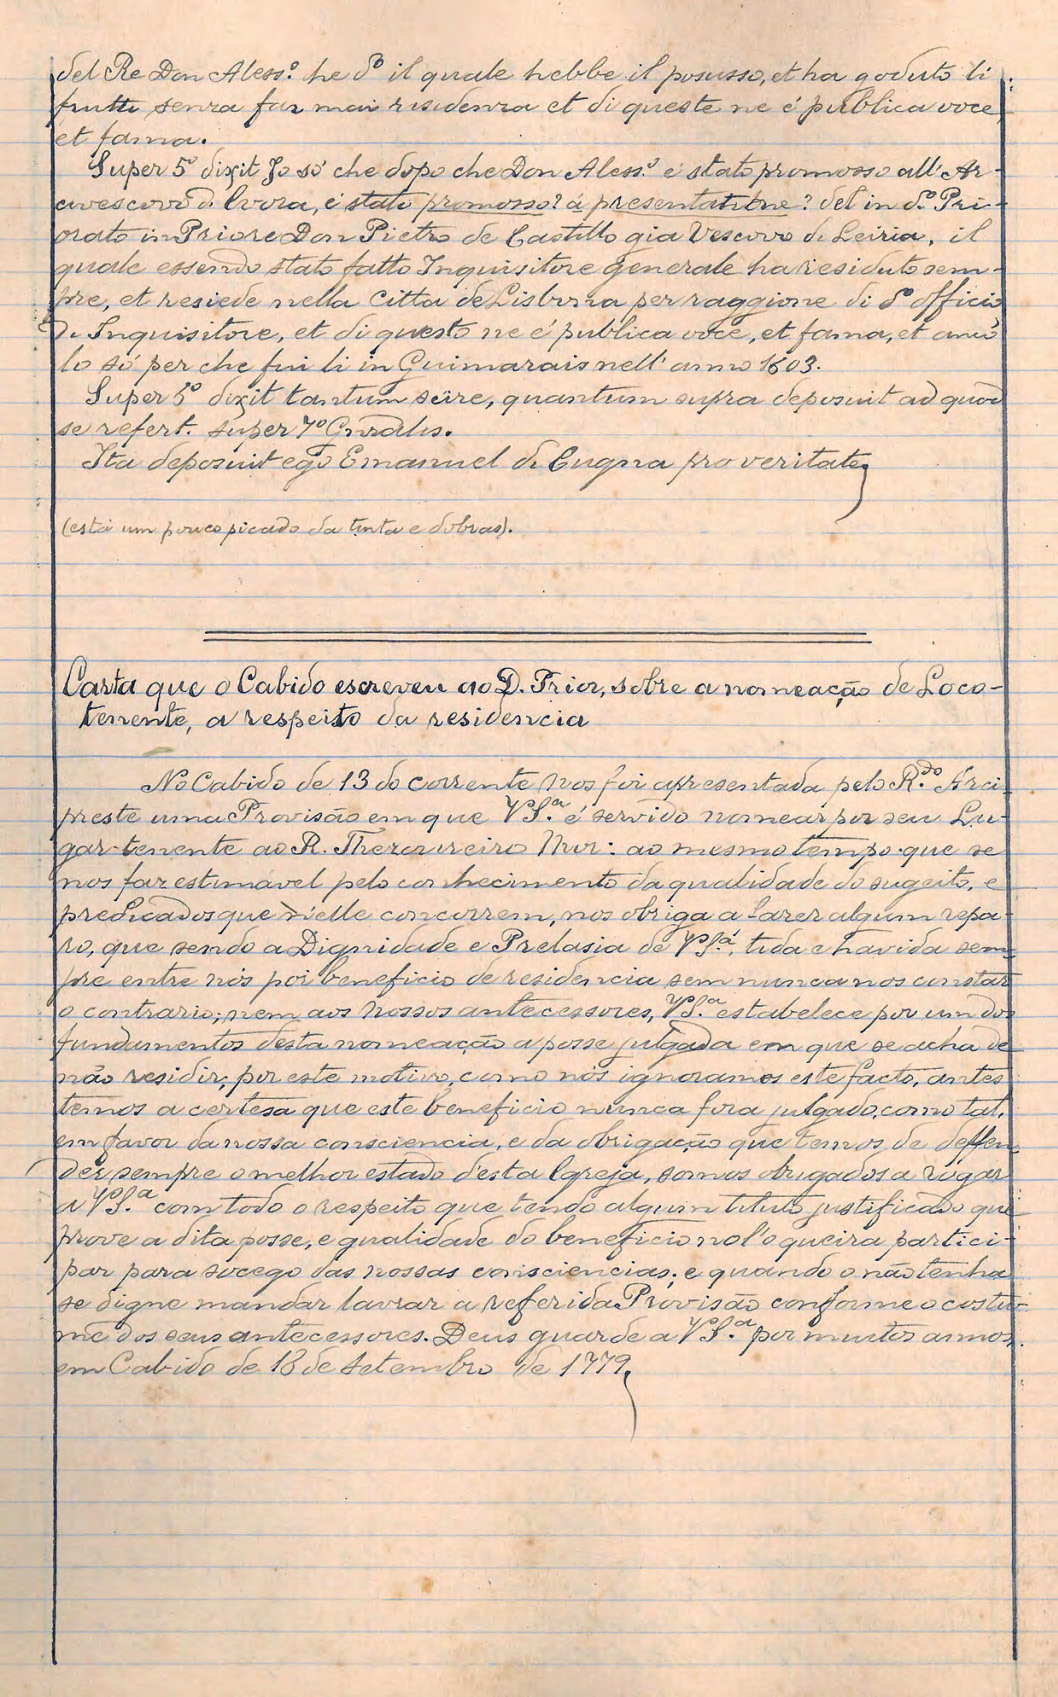 del Re Don Aless.º he d.º il quale hebbe il posusso, et ha goduto li
frutti senza far mai risidenza et di queste ne é publica voce
et fama.
Super 5º dixit Jo só che dopo che Don Aless.º é stato promosso all' Ar-
civescovo d'Evora, é stato promosso? á presentatione? del in d.º Pri-
orato in Priore Don Pietro de Castillo gia Vescovo di Leiria, il
quale essendo stato fatto Inquisitore generale ha residuto sem-
pre, et resiede nella Citta de Lisbona per raggione di d.º officio
di Inquisitore, et di questo ne é publica voce, et fama, et anco
lo só per che fui li in Guimarais nell' anno 1603.
Super 5º dixit tantum scire, quantum supra deposuit ad quod
se refert. super 7º Gñralis.
Ita deposuit ego Emanuel di Cugna pro veritate
(está um pouco picado da tinta e dobras).
Carta que o Cabido escreveu ao D. Prior, sobre a nomeação de Loco-
tenente, a respeito da residencia
No Cabido de 13 do corrente nos foi apresentada pelo R.do Arci-
preste uma Provisão em que V.S.ª é servido nomear por seu Lu-
gar-tenente ao R. Thezoureiro Mor: ao mesmo tempo que se
nos faz estimavel pelo conhecimento da qualidade do sugeito, e
predicados que n'elle concorrem, nos obriga a fazer algum repa-
ro, que sendo a Dignidade e Prelasia de V.S.ª, tida e havida sem-
pre entre nós por beneficio de residencia sem nunca nos constar
o contrario; nem aos nossos antecessores, V.S.ª estabelece por um dos
fundamentos desta nomeação a posse julgada em que se acha de
não residir; por este motivo, como nós ignoramos este facto, antes
temos a certesa que este beneficio nunca fora julgado, como tal,
em favor da nossa consciencia, e da obrigação que temos de deffen-
der sempre o melhor estado desta Igreja, somos obrigados a rogar
a V.S.ª com todo o respeito que tendo algum titulo justificado que
prove a dita posse, e qualidade do beneficio nol'o queira partici-
par para socego das nossas consciencias; e quando o não tenha
se digne mandar lavrar a referida Provisão conforme o costu-
me dos seus antecessores. Deus guarde a V.S.ª por muitos annos.
em Cabido de 18 de setembro de 1779,